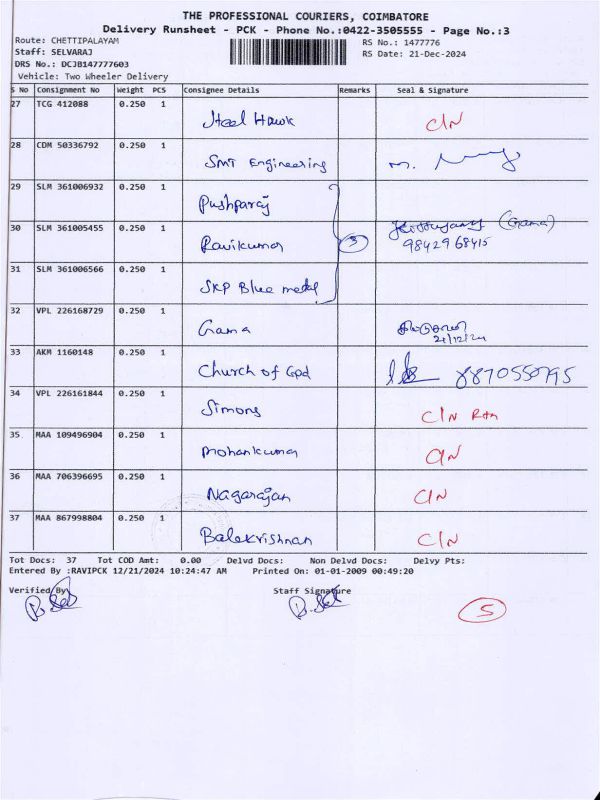 THE PROFESSIONAL COURIERS, COIMBATORE
Delivery Runsheet - PCK - Phone No.:0422-3505555 - Page No.:3
Route: CHETTIPALAYAM
Staff: SELVARAJ
DRS No.: DCJB147777603
Vehicle: Two Wheeler Delivery
RS No.: 1477776
RS Date: 21-Dec-2024
S No Consignment No Weight PCS Consignee Details Remarks Seal & Signature
27 TCG 412088 0.250 1 Steel Hawk C/N
28 CDM 50336792 0.250 1 SMT Engineering M.
29 SLM 361006932 0.250 1 Pushparaj
30 SLM 361005455 0.250 1 Ravikumar 3 (Grama)
98429 68415
31 SLM 361006566 0.250 1 SKP Blue metal
32 VPL 226168729 0.250 1 Grama
21/12/24
33 AKM 1160148 0.250 1 Church of God 8870550795
34 VPL 226161844 0.250 1 Simons C/N Rtn
35 MAA 109496904 0.250 1 Mohankumar C/N
36 MAA 706396695 0.250 1 Nagarajan C/N
37 MAA 867998804 0.250 1 Balakrishnan C/N
Tot Docs: 37 Tot COD Amt: 0.00 Delvd Docs: Non Delvd Docs: Delvy Pts:
Entered By :RAVIPCK 12/21/2024 10:24:47 AM Printed On: 01-01-2009 00:49:20
Verified By Staff Signature
5